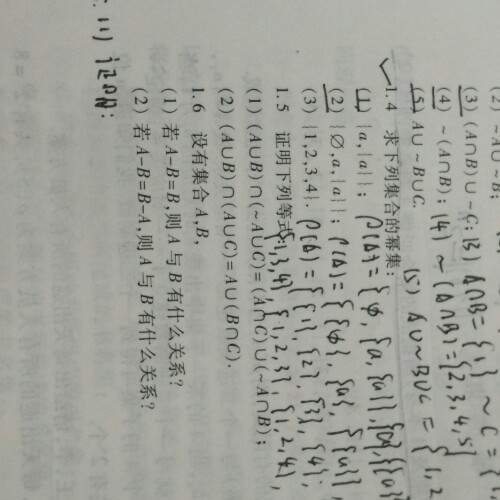 (2) A∪~B;
(3) (A∩B)∪~C; (3) A∩B={1} ~C={
(4) ~(A∩B); (4) ~(A∩B)={2,3,4,5}
(5) A∪~B∪C. (5) A∪~B∪C={1,2
1.4 求下列集合的幂集:
(1) {a,{a}}; ρ(A)={φ,{a,{a}},{a},{{a}
(2) {∅,a,{a}}; ρ(A)={{φ},{a},{{a}},
(3) {1,2,3,4}. ρ(A)={{1},{2},{3},{4},
1.5 证明下列等式: {1,3,4},{1,2,3},{1,2,4},
(1) (A∪B)∩(~A∪C)=(A∩C)∪(~A∩B);
(2) (A∪B)∩(A∪C)=A∪(B∩C).
1.6 设有集合A,B,
(1) 若A-B=B,则A与B有什么关系?
(2) 若A-B=B-A,则A与B有什么关系?
(1) 证明: